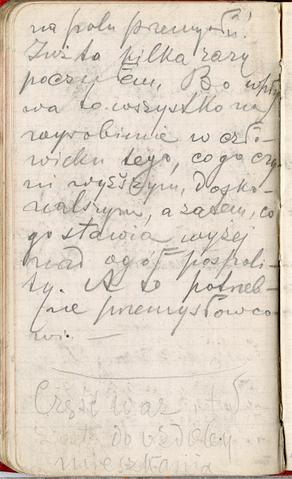 na polu przemysłu.
Już to kilka razy
poczułem. Bo wpły
wa to wszystko na
wyrobienie w czło
wieku tego, co go czy
ni wyższym, dosko
nalszym, a zatem, co
go stawia wyżej
nad ogół pospoli
ty. A to potrzeb
ne przemysłowco
wi. —
Część waz
do ozdoby
mieszkania